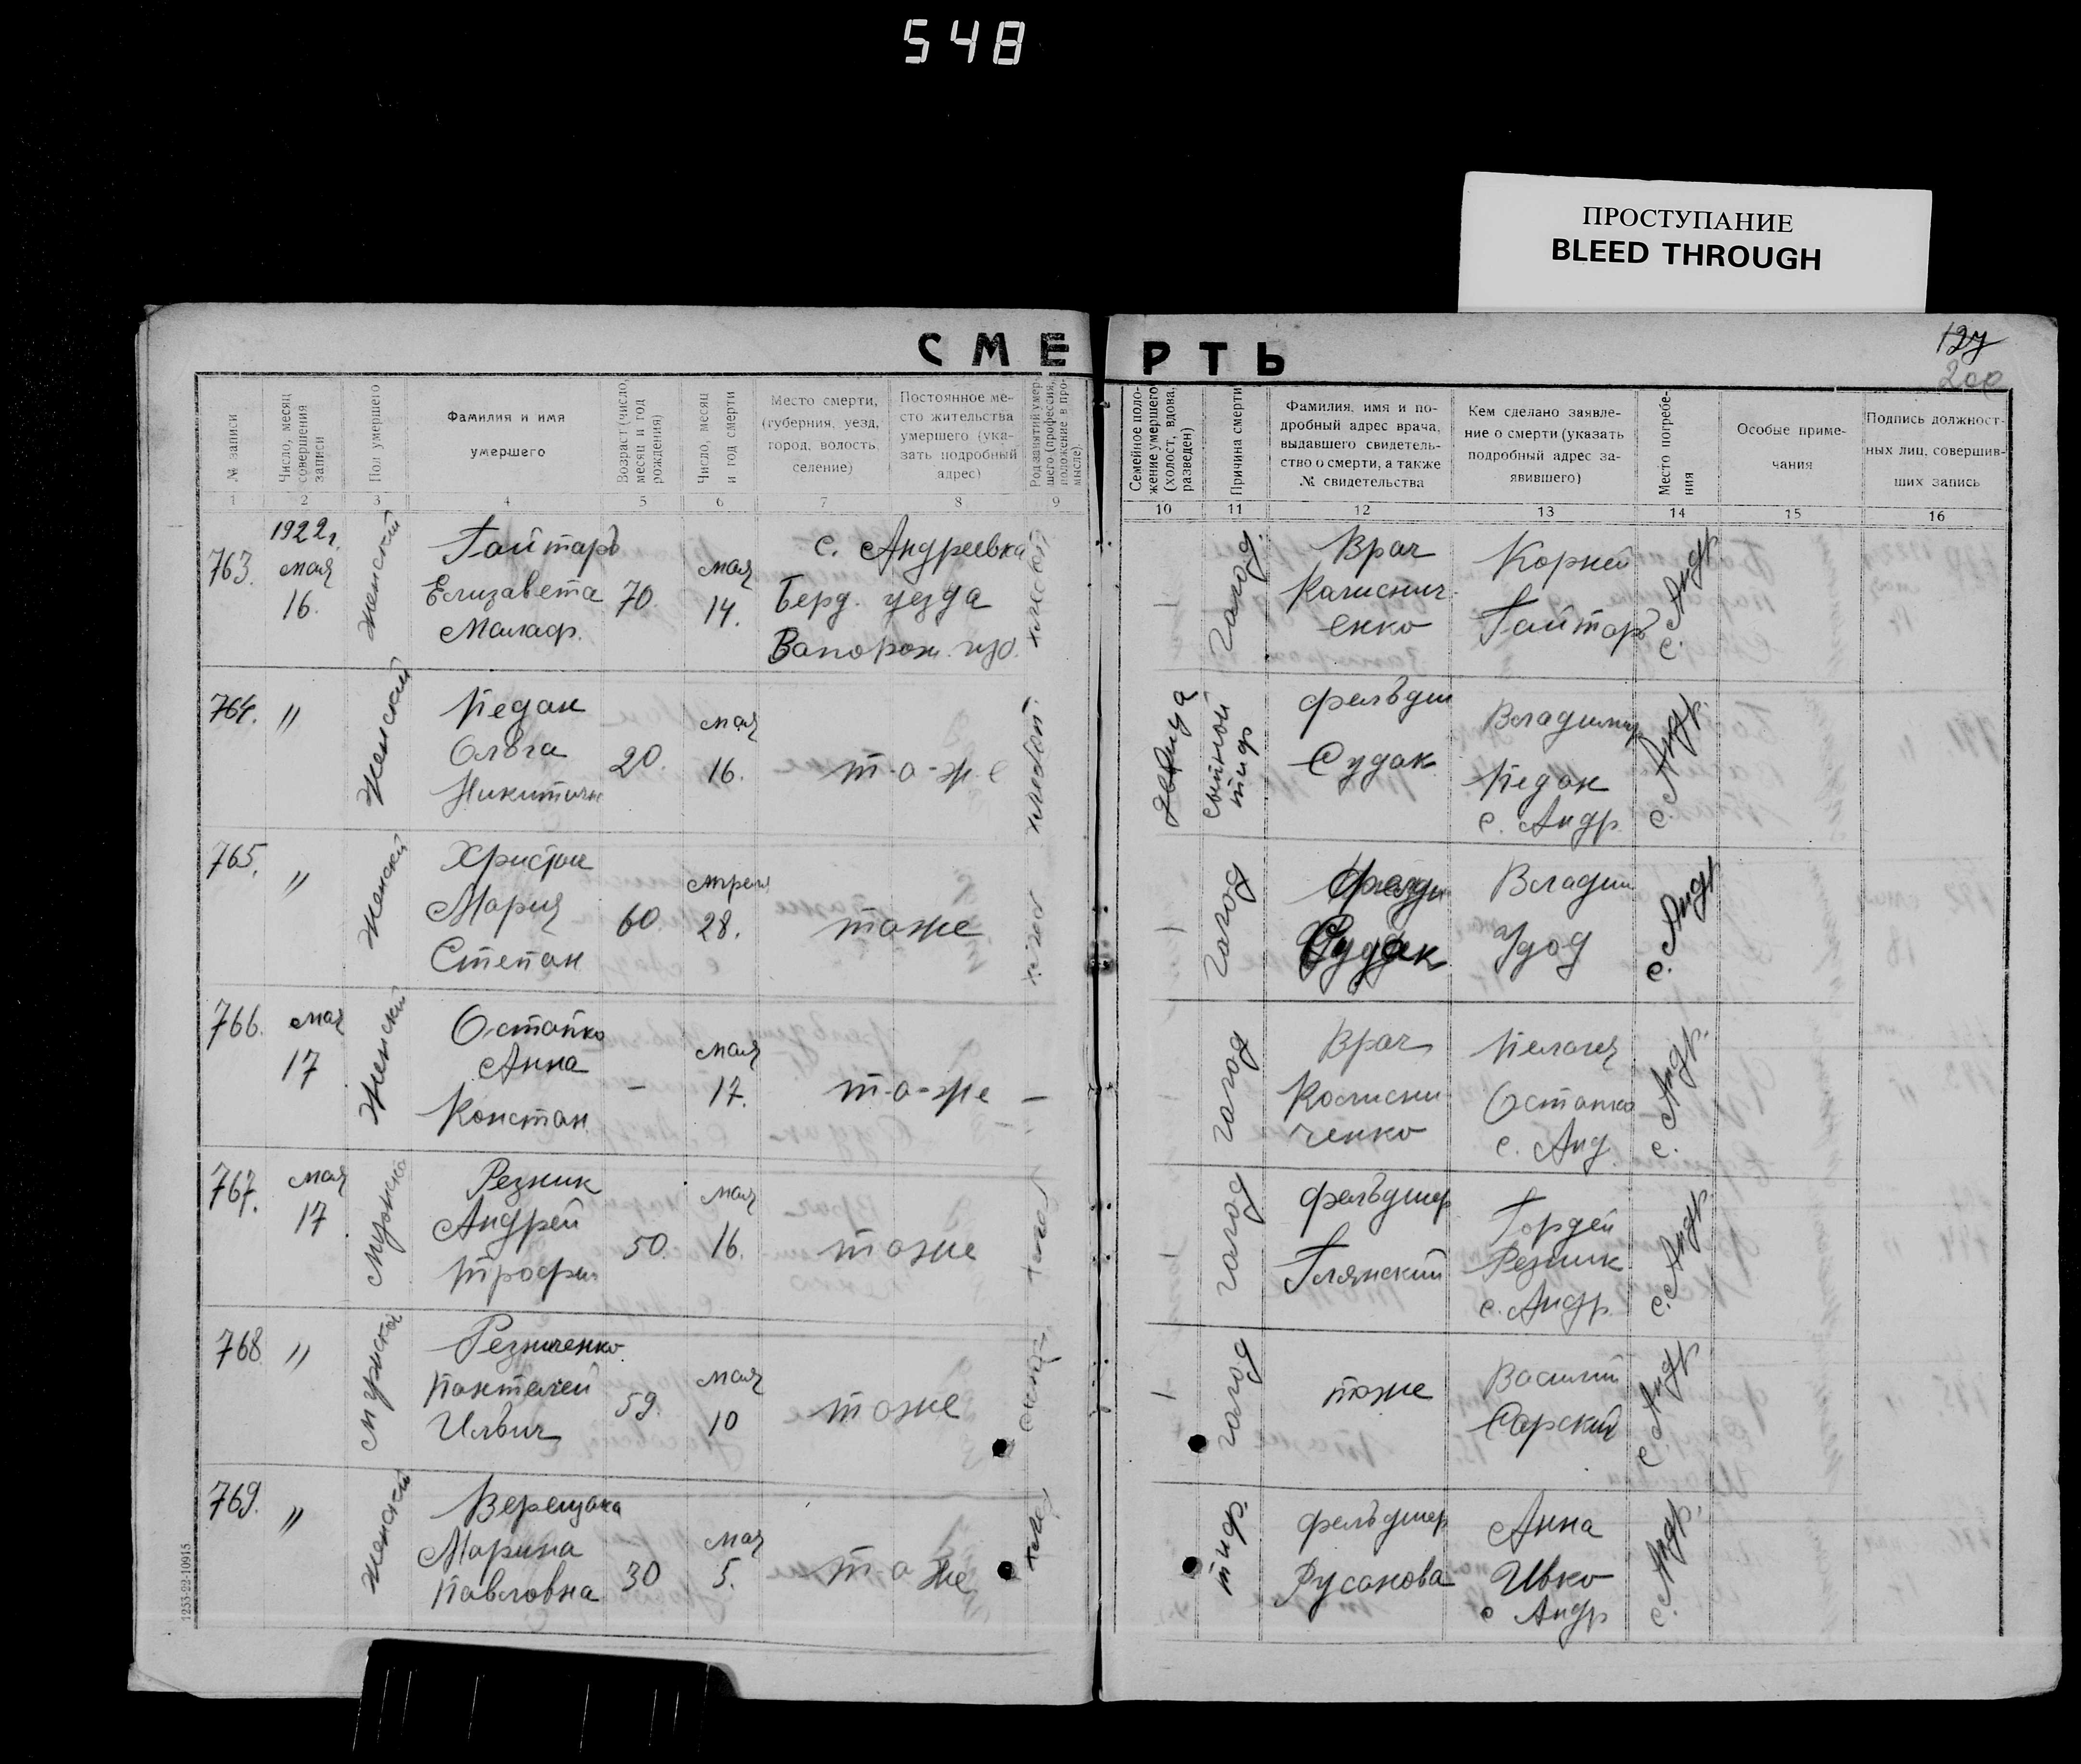 548
ПРОСТУПАНИЕ
BLEED THROUGH
СМЕРТЬ
127
200
№ записи
Число, месяц совершения записи
Пол умершего
Фамилия и имя
умершего
Возраст (число, месяц и год рождения)
Число, месяц и год смерти
Место смерти,
(губерния, уезд,
город, волость,
селение)
Постоянное ме-
сто жительства
умершего (ука-
зать подробный
адрес)
Род занятий умер-
шего (профессия,
положение в про-
мысле).
Семейное поло-
жение умершего
(холост, вдова,
разведен)
Причина смерти
Фамилия, имя и по-
дробный адрес врача,
выдавшего свидетель-
ство о смерти, а также
№ свидетельства
Кем сделано заявле-
ние о смерти (указать
подробный адрес за-
явившего)
Место погребе-
ния
Особые приме-
чания
Подпись должност-
ных лиц, совершив-
ших запись
1 2 3 4 5 6 7 8 9 10 11 12 13 14 15 16
763.
1922г.
мая
16.
женский
Гайтаръ
Елизавета
Малаф.
70.
мая
14.
с. Андреевка
Берд. уезда
Запорож. губ.
голод.
Врач
Калиснич-
енко
Корней
Гайтаръ
с. Андр.
764.
"
женский
Педан
Ольга
Никитичн
20.
мая
16.
т-о-ж-е
девица
сыпной
тиф
фельдш
Судак
Владимир
Педак
с. Андр.
с. Андр.
765.
"
женский
Христан
Мария
Степан
60.
апреля
28.
тоже
голод
Фельдш
Судак
Владим
Удод
с. Андр
766.
мая
17
женский
Остапко
Анна
Констан
-
мая
17.
т-о-же
-
голод
Врач
Колисни
ченко
Пелагея
Остапко
с. Анд.
с. Андр.
767.
мая
17
мужско
Резник
Андрей
Трофим
50.
мая
16.
тоже
голод
фельдшер
Гленский
Гордей
Резник
с. Андр.
с. Андр.
768
"
мужской
Резниченко
Пантелей
Ильич
59.
мая
10
тоже
голод
тоже
Василий
Сарский
с. Андр.
769.
"
женский
Верещака
Марина
Павловна
30
мая
5.
т-о же
тиф.
фельдшер
Русанова
Анна
Ивко
с Андр
с. Андр.
1253-22-10915